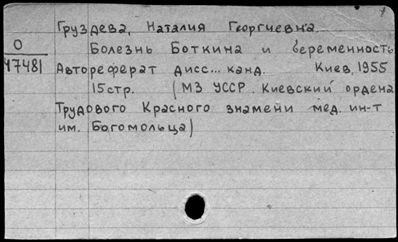 Груздева, Наталия Георгиевна.
О
17481
Болезнь Боткина и беременность
Автореферат дисс... канд. Киев, 1955
15стр. (МЗ УССР. Киевский ордена
Трудового Красного знамени мед. ин-т
им. Богомольца)